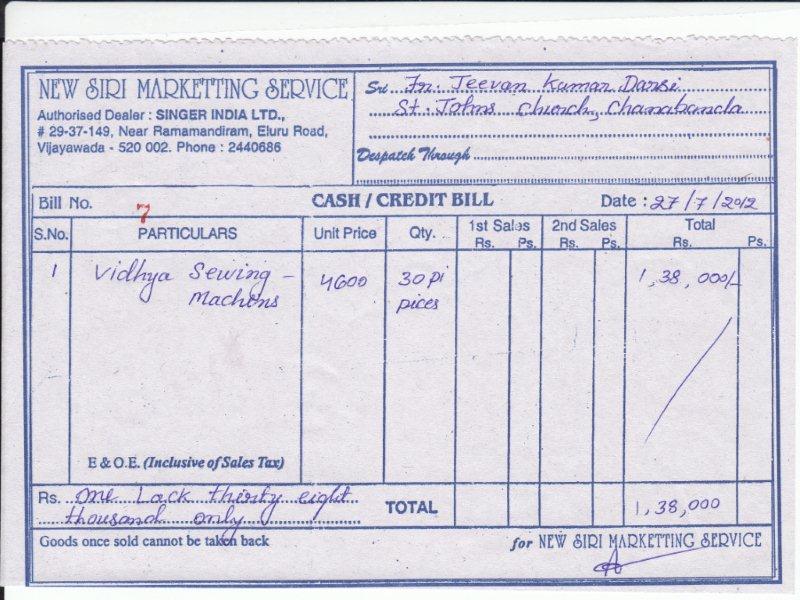 NEW SIRI MARKETTING SERVICE
Authorised Dealer : SINGER INDIA LTD.,
# 29-37-149, Near Ramamandiram, Eluru Road,
Vijayawada - 520 002. Phone : 2440686
Sri Fr. Jeevan Kumar Darsi
St. Johns church, Chanabanda
Despatch Through
Bill No. 7 CASH / CREDIT BILL Date : 27/7/2012
S.No. PARTICULARS Unit Price Qty. 1st Sales Rs. Ps. 2nd Sales Rs. Ps. Total Rs. Ps.
1 Vidhya Sewing - 4600 30 pi 1,38,000/-
Machens pices
E & O.E. (Inclusive of Sales Tax)
Rs. One Lack thirty eight
thousand only TOTAL 1,38,000
Goods once sold cannot be taken back for NEW SIRI MARKETTING SERVICE